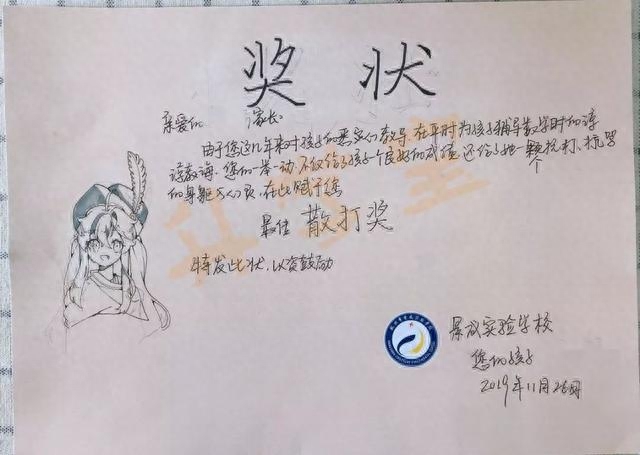 奖 状
亲爱的 家长:
由于您这几年来对孩子的悉心教导,在平时为孩子辅导数学时的谆
谆教诲,您的一举一动,不仅给了孩子一个良好的成绩,还给了她一颗抗打、抗骂
的身躯与人
个
最佳 散打奖
特发此状,以资鼓励
景成实验学校
您的孩子
2019年11月26日